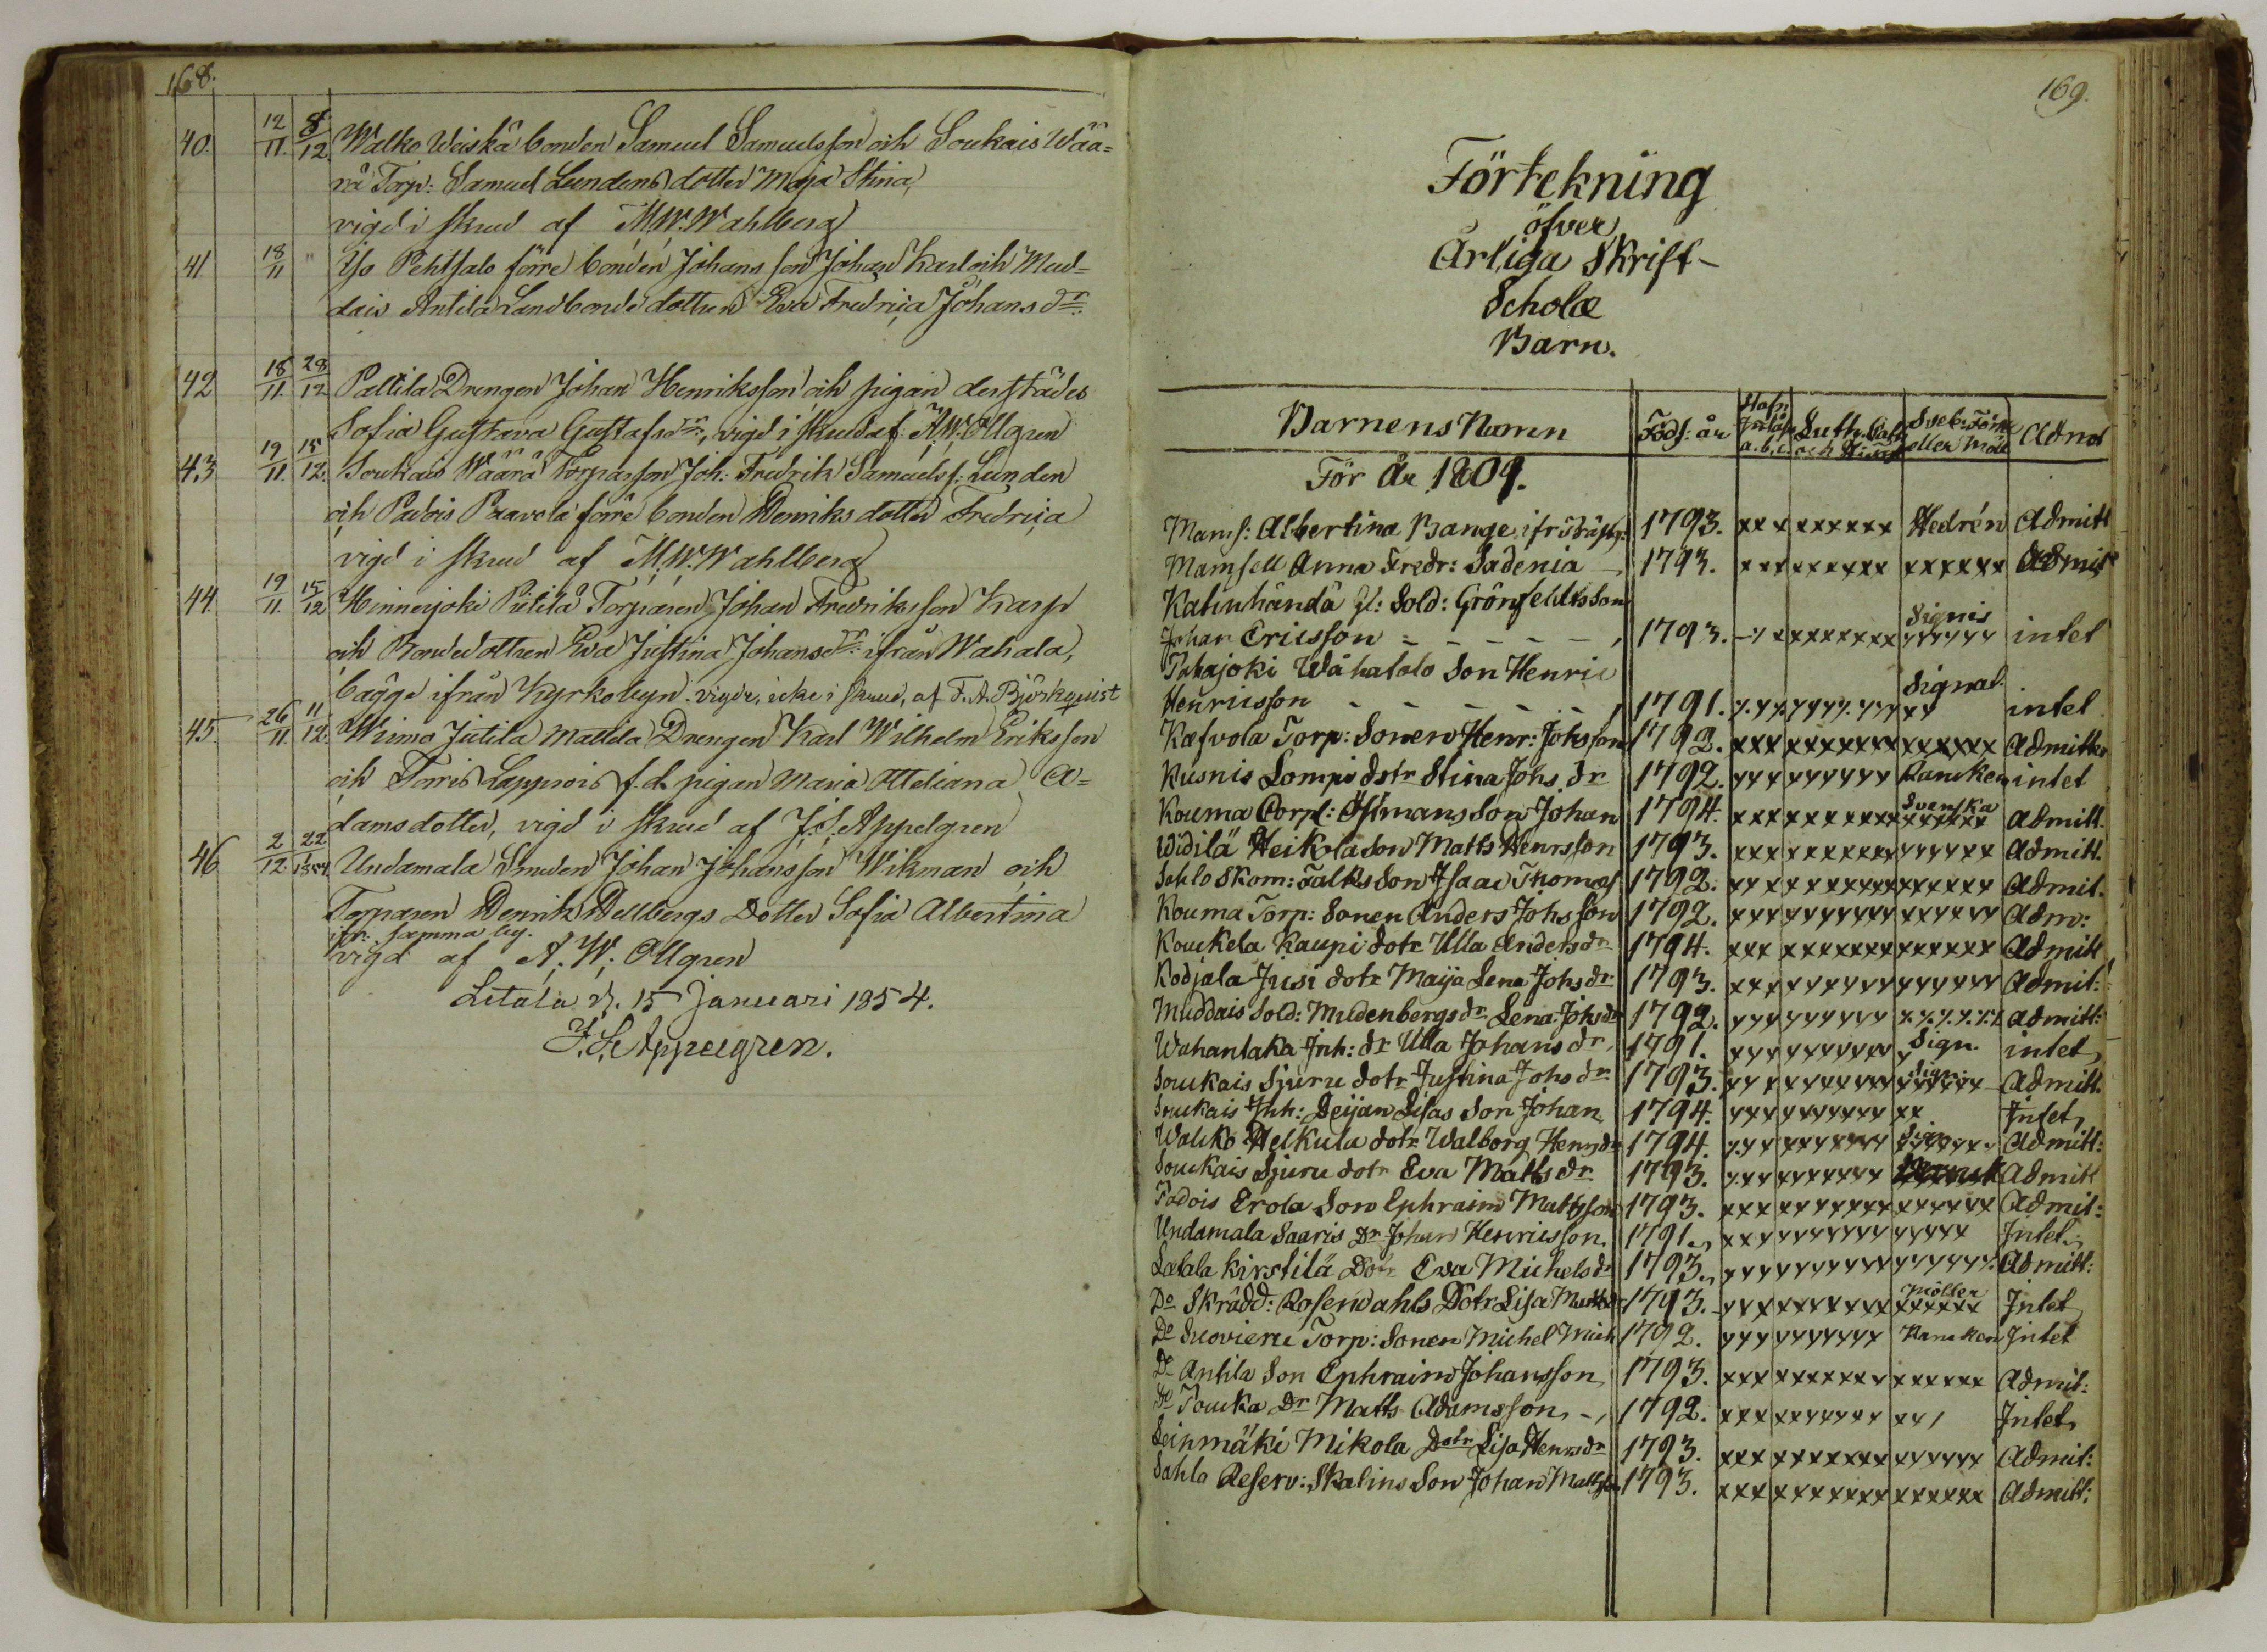 168.
40. 12/11. 8/12. Walko Weiskä bonden Samuel Samuelsson och Soukais Wää=
rä Torp: Samuel Lundens dotter Maja Stina,
vigd i skrud af M.W. Wahlberg
41 18/11 " Yso Pehtsalo förre bonden Johans son Johan Karl och Mud=
dais Antila Landbonde dottren Eva Fredrica Johans dr.
42 18/11. 28/12 Pältila Drengen Johan Henriksson och pigan derstädes
Sofia Gustava Gustafsdr, vigd i skrud af A.W. Ollgren
43 19/11. 15/12. Soukais Wäärä Torparson Joh: Fredrik Samuelss: Lunden
och Padois Paavola förre bonden Henriks dotter Fredrica
vigd i skrud af M.W. Wahlberg
44 19/11 15/12 Hinnerjoki Pietilä Torparen Johan Fredriksson Karp
och Bondedottren Eva Justina Johansdr: ifrån Wahala,
bägge ifrån Kyrkobyn. vigde, icke i skrud, af F.A. Björkquist
45 26/11 11/12. Wiimo Jutila Mattila Drengen Karl Wilhelm Eriksson
och Torris Lapprois f.d. pigan Maria Otteliana A=
damsdotter, vigd i skrud af J.S. Appelgren
46 2/12 22/1854 Undamala Smeden Johan Johansson Wikman och
Torparen Henrik Hellbergs Dotter Sofia Albertina
ifr: samma by.
vigd af A.W. Ollgren
Letala d. 15 Januari 1854.
J.S. Appelgren.
169.
Förtekning
öfver
Årliga Skrift-
Scholæ
Barn.
Barnens Namn Föds: år a.b.c. Luth. Cat. och Sveb: Förkl eller Möll Admit
För År 1809.
Mams: Albertina Bange 1793. xxx xxxxxx Hedrén Admitt
Mamsell Anna Fredr: Sadenia - 1793. xxx xxxxxx xxxxxx Admit
Katinhändä Gl: Sold: Grönfeldts Son
Signis
Johan Ericsson - - - - - 1793. xxxxxxx xxxxxx intet
Ihajoki Wähatalo Son Henric
Signat
Henricsson - - - - - 1791. xxx xxxxxx xx intet
Kæfvola Torp: Sonen Henr: Johsson 1792. xxx xxxxxxx xxxxxx Admitter
Kusnis Lompis dotr Stina Johs dr 1792. xxx xxxxxx Rancken intet
Svenska
Kouma Corpl: Östmans Son Johan 1794. xxx xxxxxxx xxxxxx Admitt.
Widilä Heikola Son Matts Henrsson 1793. xxx xxxxxxx xxxxxx Admitt.
Sahlo Skom: Falks Son Isaac Thomas 1792. xxx xxxxxxx xxxxxx Admit.
Kouma Torp: Sonen Anders Johsson 1792. xxx xxxxxxx xxxxxx Adm:
Koukela Kaupi dotr Ulla Anders dr 1794. xxx xxxxxxx xxxxxx Admitt
Kodjala Jusi dotr Maija Lena Johs dr 1793. xxx xxxxxxx xxxxxx Admit:
Muddais Sold: Mildenbergs dr Lena Johsdr 1792. xxx xxxxxx xxxxxx Admitt:
Wahantaka Inh: dr Ulla Johans dr 1791. xxx xxxxxxx Sign. intet
Sign.
Soukais Sjuru dotr Justina Johs dr 1793. xxx xxxxxxx xxxxxx Admitt.
Soukais Inh: Deijan Lisas Son Johan 1794. xxx xxxxxxx xx Intet
Waliko Helkula dotr Walborg Henrsdr 1794. xxx xxxxxxx xxxxxx Admitt:
Soukais Sjuru dotr Eva Matts dr 1793. xxx xxxxxxx Admitt
Padois Erola Son Ephraim Mattsson 1793. xxx xxxxxxx xxxxxx Admit:
Undamala Saaris Dr Johan Henricsson 1791. xxx xxxxxxx xxxxx Intet
Letala Kirstilä Dotr Eva Michels dr 1793. xxx xxxxxxx xxxxxx Admitt:
Möller
Do Skrädd: Rosendahls Dotr Lisa Mattsdr 1793. xxx xxxxxxx xxxxxx Intet
Do Suovieru Torp: Sonen Michel Mich 1792. xxx xxxxxxx Rancken Intet
Do Antila Son Ephraim Johansson 1793. xxx xxxxxxx xxxxxx Admit:
Do Pouka Dr Matts Adamsson - 1792. xxx xxxxxxx xx/ Intet
Leinmäki Mikola Dotr Lisa Henrsdr 1793. xxx xxxxxxx xxxxxx Admit:
Sahlo Reserv: Skalins Son Johan Mattsson 1793. xxx xxxxxxx xxxxxx Admitt: